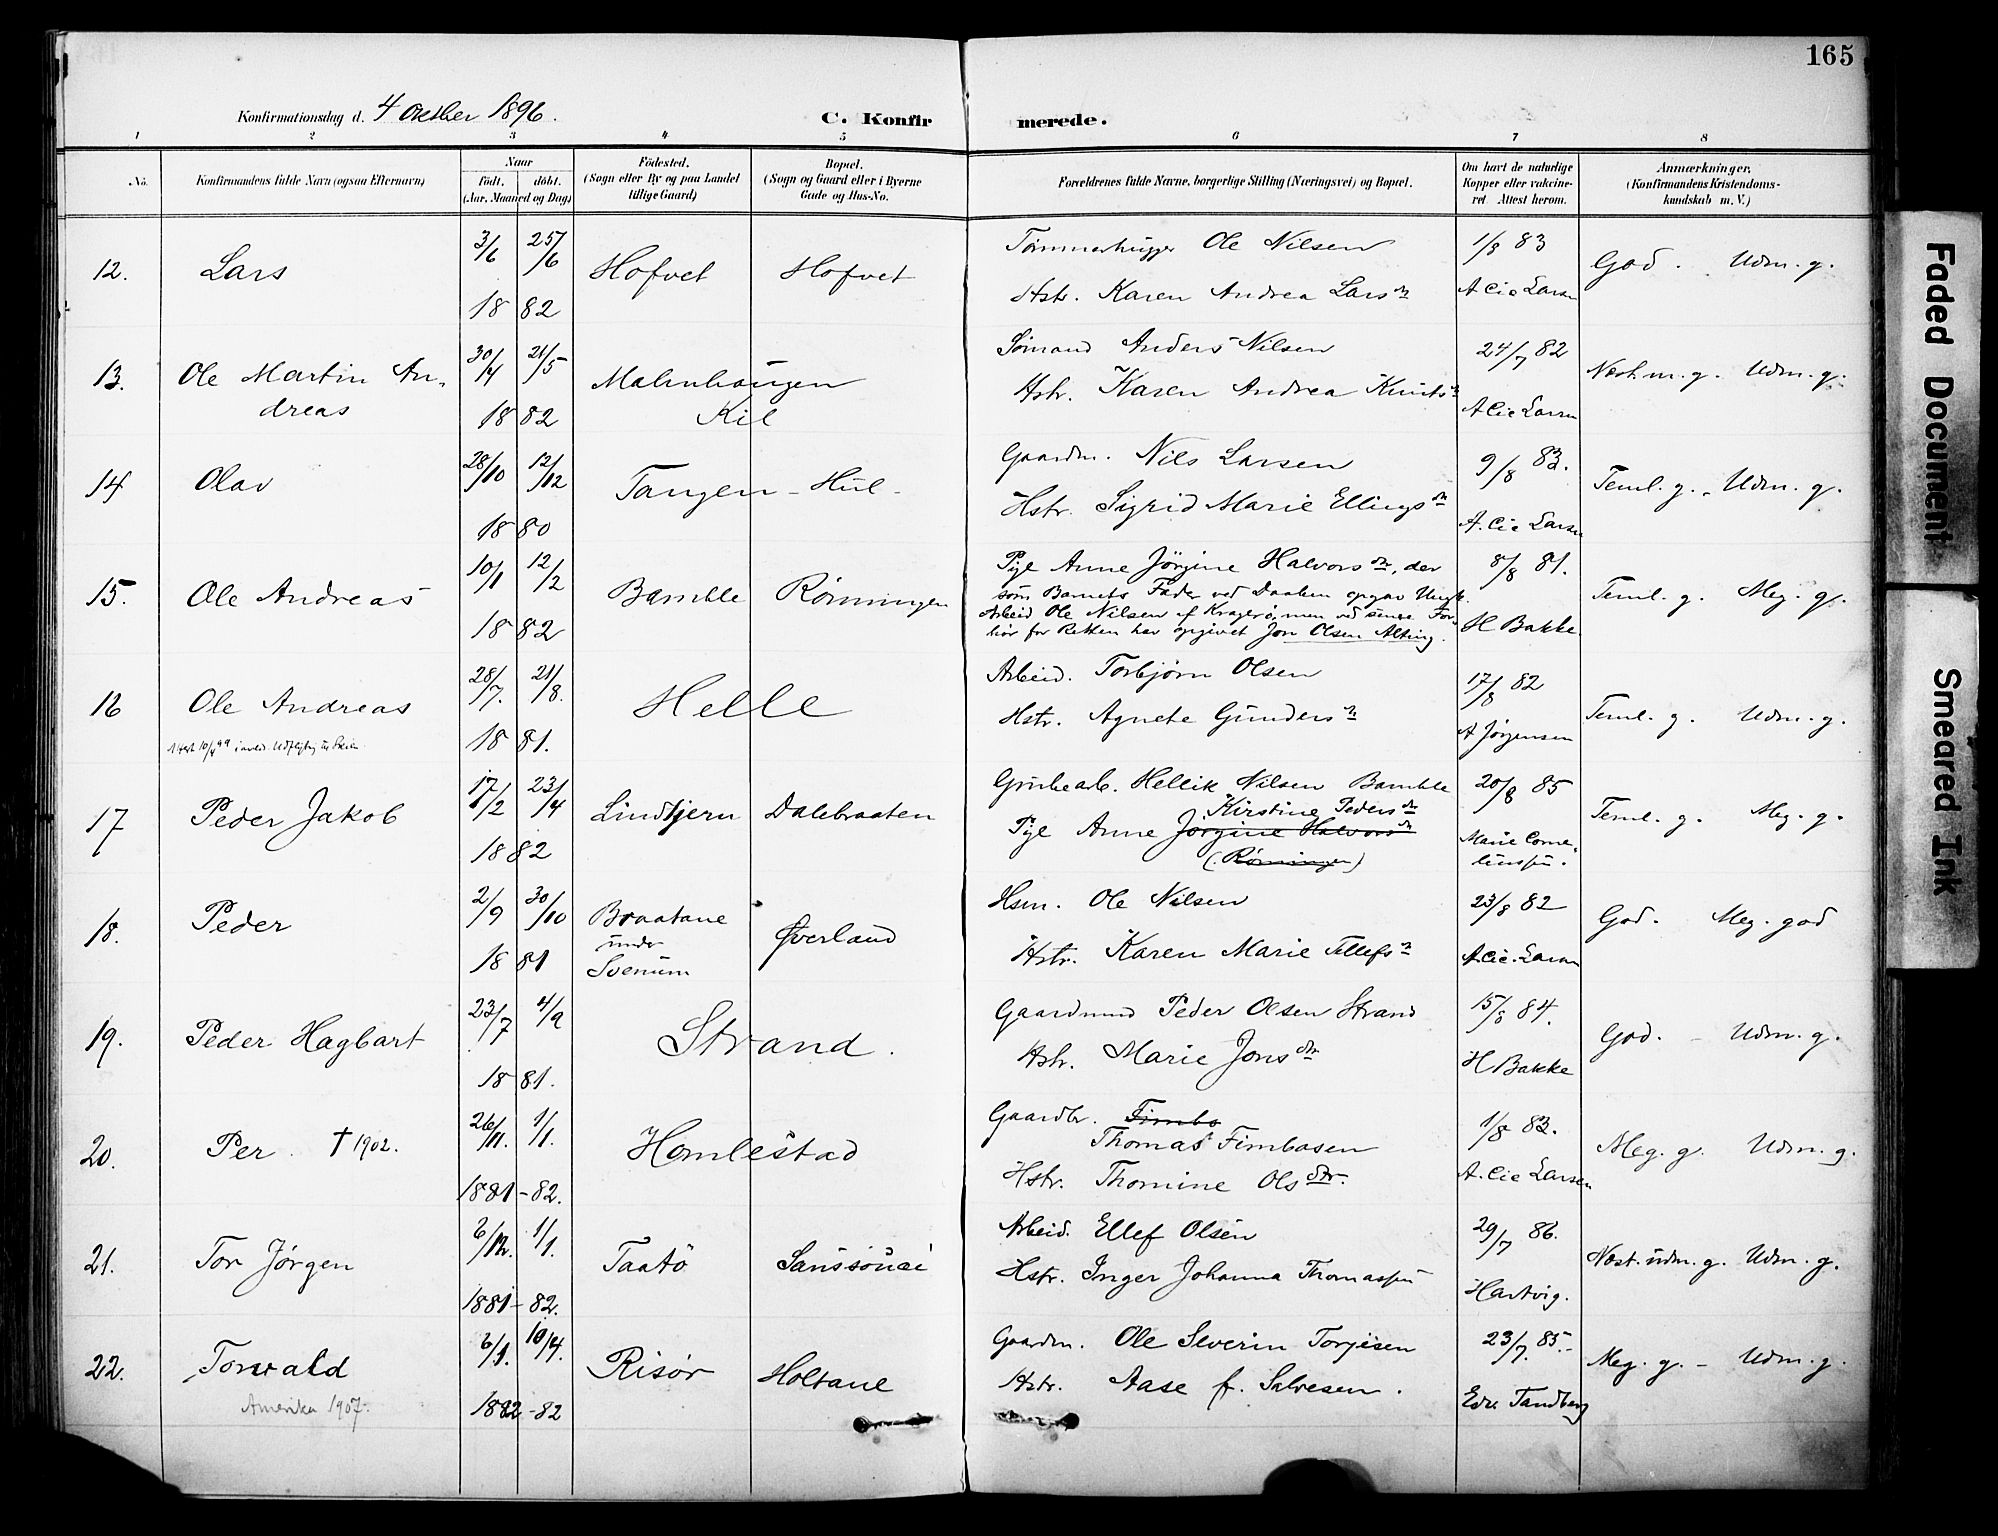 165
Konfirmationsdag d. 4 October 1896.
C. Konfirmerede.
1 2 3 4 5 6 7 8
No.
Konfirmandens fulde Navn (ogsaa Efternavn)
Naar
Födt. döbt.
(Aar, Maaned og Dag)
Födested.
(Sogn eller By og paa Landet
tillige Gaard)
Bopæl.
(Sogn og Gaard eller i Byerne
Gade og Hus-No.
Forældrenes fulde Navne, borgerlige Stilling (Næringsvei) og Bopæl.
Om havt de naturlige
Kopper eller vakcine-
ret Attest herom.
Anmærkninger.
(Konfirmandens Kristendoms-
kundskab m. V.)
12. Lars 3/6 25/6 1882 Hofvet Hofvet
Tømmerhugger Ole Nilsen
Hstr. Karen Andrea Larsdtr
1/8 83
A Cie Larsen
God. Udm. g.
13. Ole Martin An-
dreas
30/4 21/5 1882
Malmhaugen
Kil
Sömand Anders Nilsen
Hstr. Karen Andrea Knutsdtr
24/7 82
A Cie Larsen
Næst m. g. Udm. g.
14 Olav 28/10 12/12 1880 Tangen - Hul -
Gaardm. Nils Larsen
Hstr. Sigrid Marie Ellingsdtr
9/8 83.
A. Cie Larsen
Teml. g. - Udm. g.
15. Ole Andreas 10/1 12/2 1882 Bamble Rönningen
Pige Anne Jörgine Halvorsdtr, der
som Barnets Fader ved Daaben opgav Ungk.
Arbeid Ole Nilsen af Kragerö, men ved senere For-
hör for Retten har opgivet Jon Olsen Alting.
8/8 81.
H Bakke
Teml. g. Meg. g.
16 Ole Andreas 28/7. 21/8. 1881. Helle
Attest 10/4 99 i anled. Udflytng til Skien.
Arbeid. Torbjörn Olsen
Hstr. Agnete Gundersdtr
17/8 82
A Jørgensen
Teml. g. Udm. g.
17 Peder Jakob 17/2 23/4 1882 Lindtjern Dalebraaten
Grubearb. Hellik Nilsen Bamble
Kirstine Pedersdtr
Pige Anne Jörgine Halvorsdtr
(Rönningen)
20/8 85
Marie Corne-
liussen.
Teml. g. Meg. g.
18. Peder 2/9 30/10 1881
Braatane
under
Svenum
Øverland
Hsm. Ole Nilsen
Hstr. Karen Marie Tellefsdtr
23/8 82
A. Cie. Larsen
God. Meg. god
19. Peder Hagbart 23/7 4/9 1881. Strand.
Gaardmand Peder Olsen Strand
Hstr. Marie Jonsdtr
15/8 84.
H Bakke
God. - Udm. g.
20. Per † 1902. 26/11. 1/1. 1881-82. Homlestad
Gaardbr. Fimbo
Thomas Fimbosen
Hstr. Thomine Olsdtr.
1/8 83.
A. Cie Larsen
Meg. g. Udm. g.
21. Tor Jörgen 6/12. 1/1. 1881-82. Taatö Sanssouci
Arbeid. Ellef Olsen
Hstr. Inger Johanna Thomassen
29/7 86.
Hartvig.
Næst. udm. g. Udm. g.
22. Torvald 6/1. 10/4. 1882-82 Risör Holtane
Amerika 1907.
Gaardm. Ole Severin Torjesen
Hstr. Aase f. Salvesen.
23/7. 85.-
Edv. Tandberg
Meg. g. - Udm. g.
Faded Document
Smeared Ink